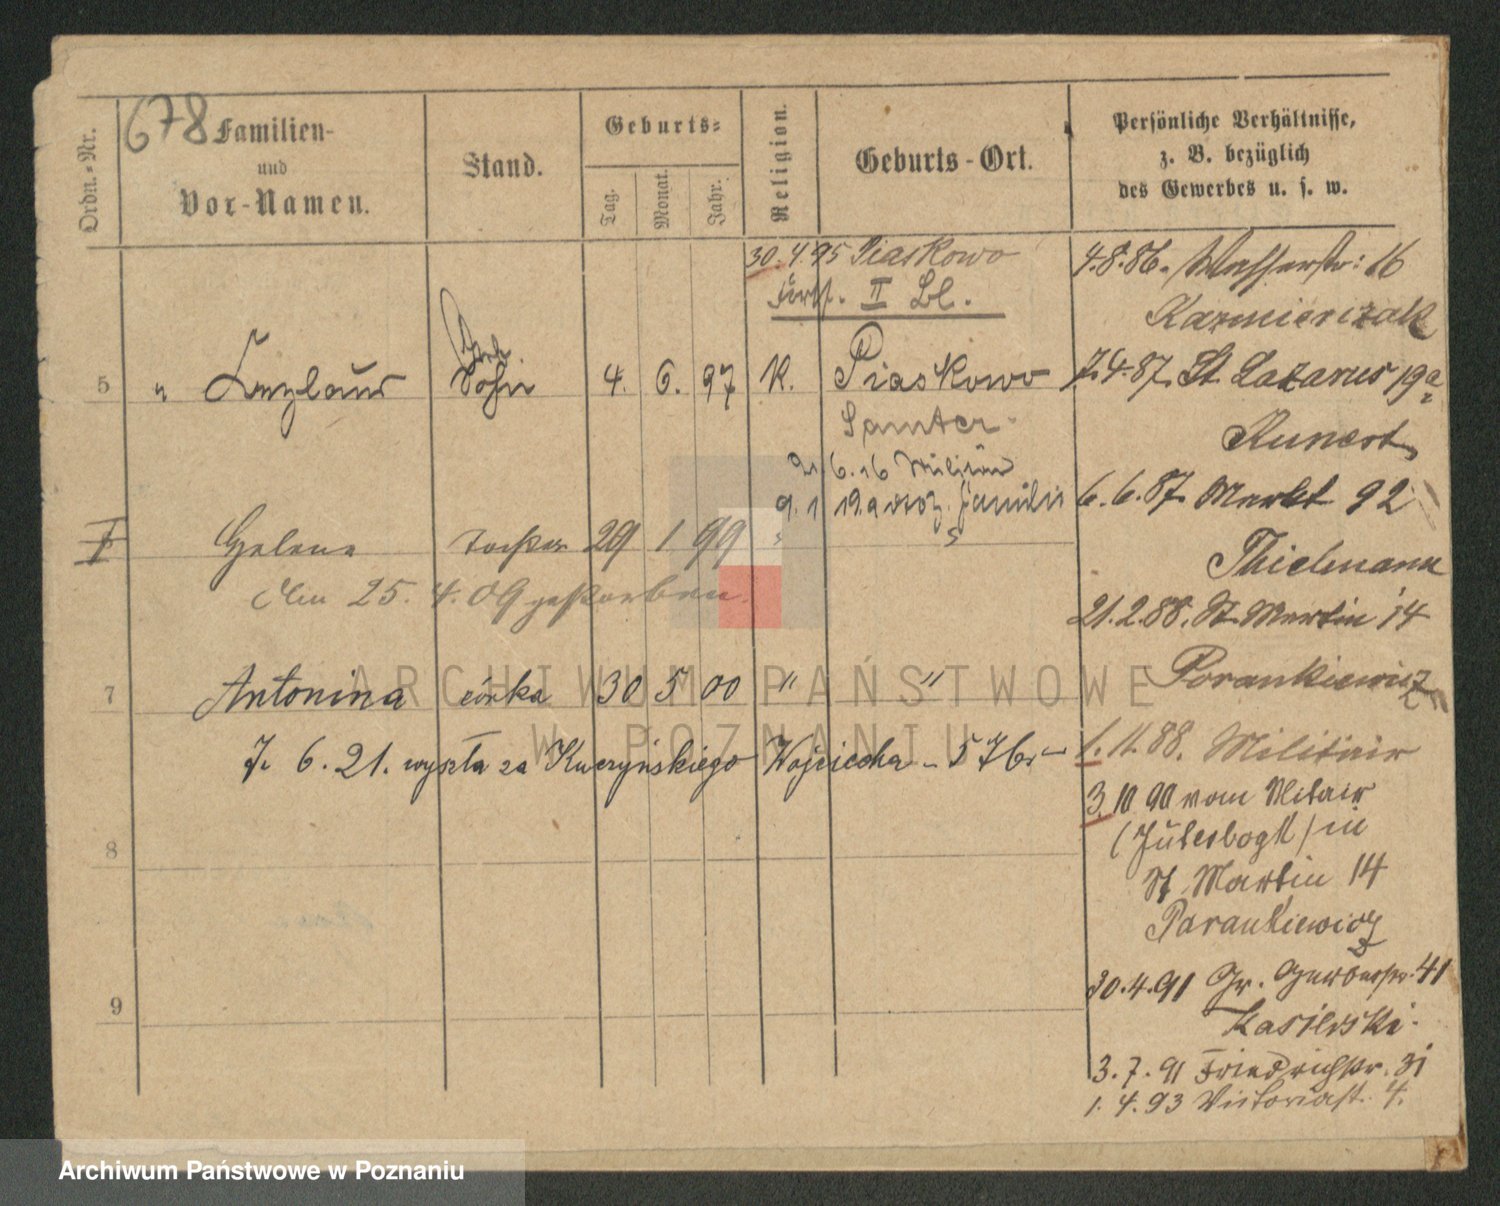 678
Ordn.-Nr.
Familien-
und
Vor-Namen.
Stand.
Geburts-
Tag.
Monat.
Jahr.
Religion.
Geburts-Ort.
Persönliche Verhältnisse,
z. B. bezüglich
des Gewerbes u. s. w.
30.4.95 Piaskowo
II Bl.
5 " Sohn 4. 6. 97 K. Piaskowo
Samter
21 6.16 Militär
9. 1 19. Familie
Helena Tochter 29 1 99
den 25. 4. 09 gestorben.
7 Antonina córka 30 5 00 " "
7. 6. 21. wyszła za Kuczyńskiego Wojciecha
8
9
4.8.86. Wasserstr: 16
Kazmierczak
7.4.87. St. Lazarus 19a
Kunert
6.6.87 Markt 92
Thielmann
21.2.88. St. Martin 14
Porankiewicz
1.11.88. Militair
3.10 90 vom Militair
(Jüterbogk) in
St. Martin 14
Parankiewicz
30.4.91 Gr. Gerberstr. 41
Kasierski
3.7.91 Friedrichstr. 31
1.4.93 Victoriast. 4.
ARCHIWUM PAŃSTWOWE
W POZNANIU
Archiwum Państwowe w Poznaniu